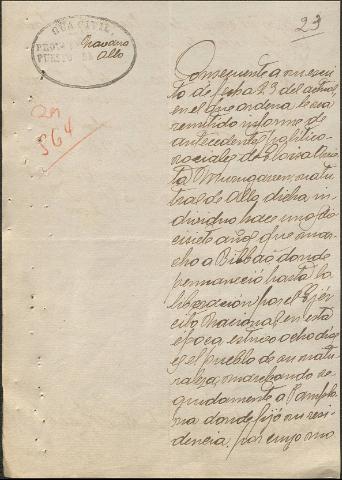 23
GUARDIA CIVIL
Navarra
PUESTO DE Allo
864
Consecuente a su escri-
to de fecha 23 del actual
en el que ordena le sea
remitido informe de
antecedentes politico-
sociales de Eloisa
natu-
ral de Allo, dicha in-
dividuo hace unos die-
cisiete años que mar-
cho a Bilbao donde
permaneció hasta la
liberación por el Ejér-
cito Nacional, en esta
época, estuvo ocho dias
en el pueblo de su natu-
raleza, marchando se-
guidamente a Pamplo-
na donde fijó su resi-
dencia, por cuyo mo